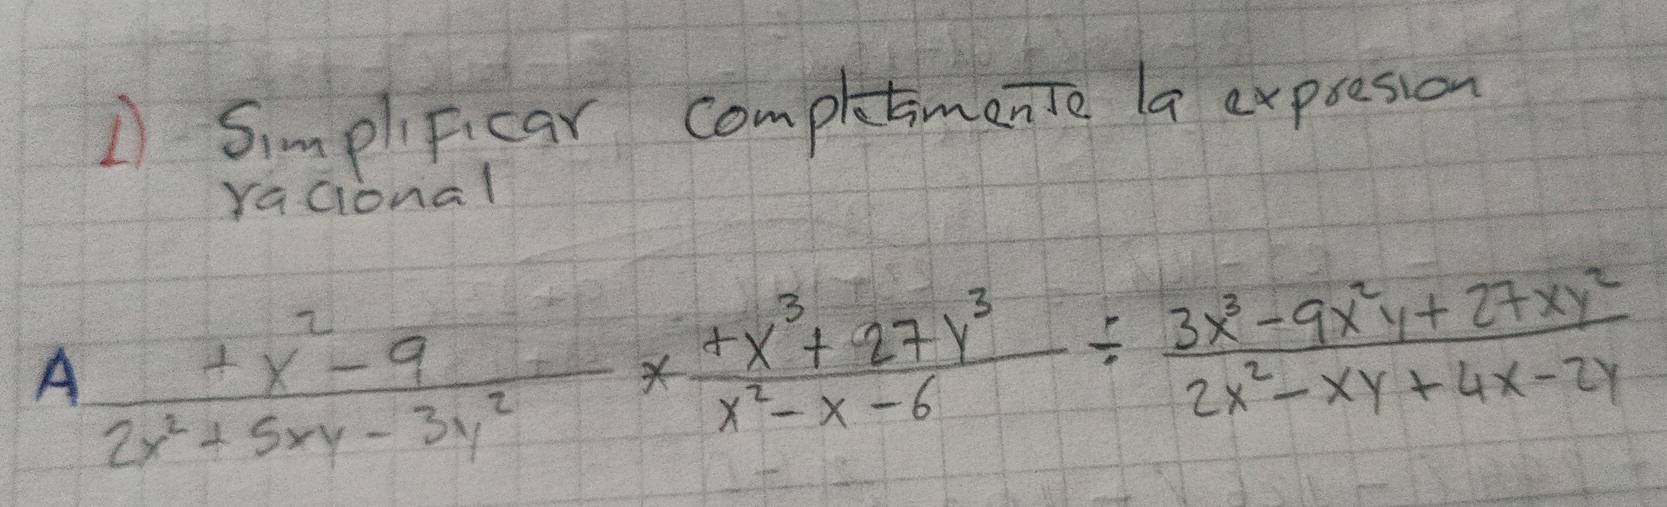 1) Simplificar completamente la expresion
racional
A (+x² - 9)/(2x² + 5xy - 3y²) × (+x³ + 27y³)/(x² - x - 6) ÷ (3x³ - 9x²y + 27xy²)/(2x² - xy + 4x - 2y)